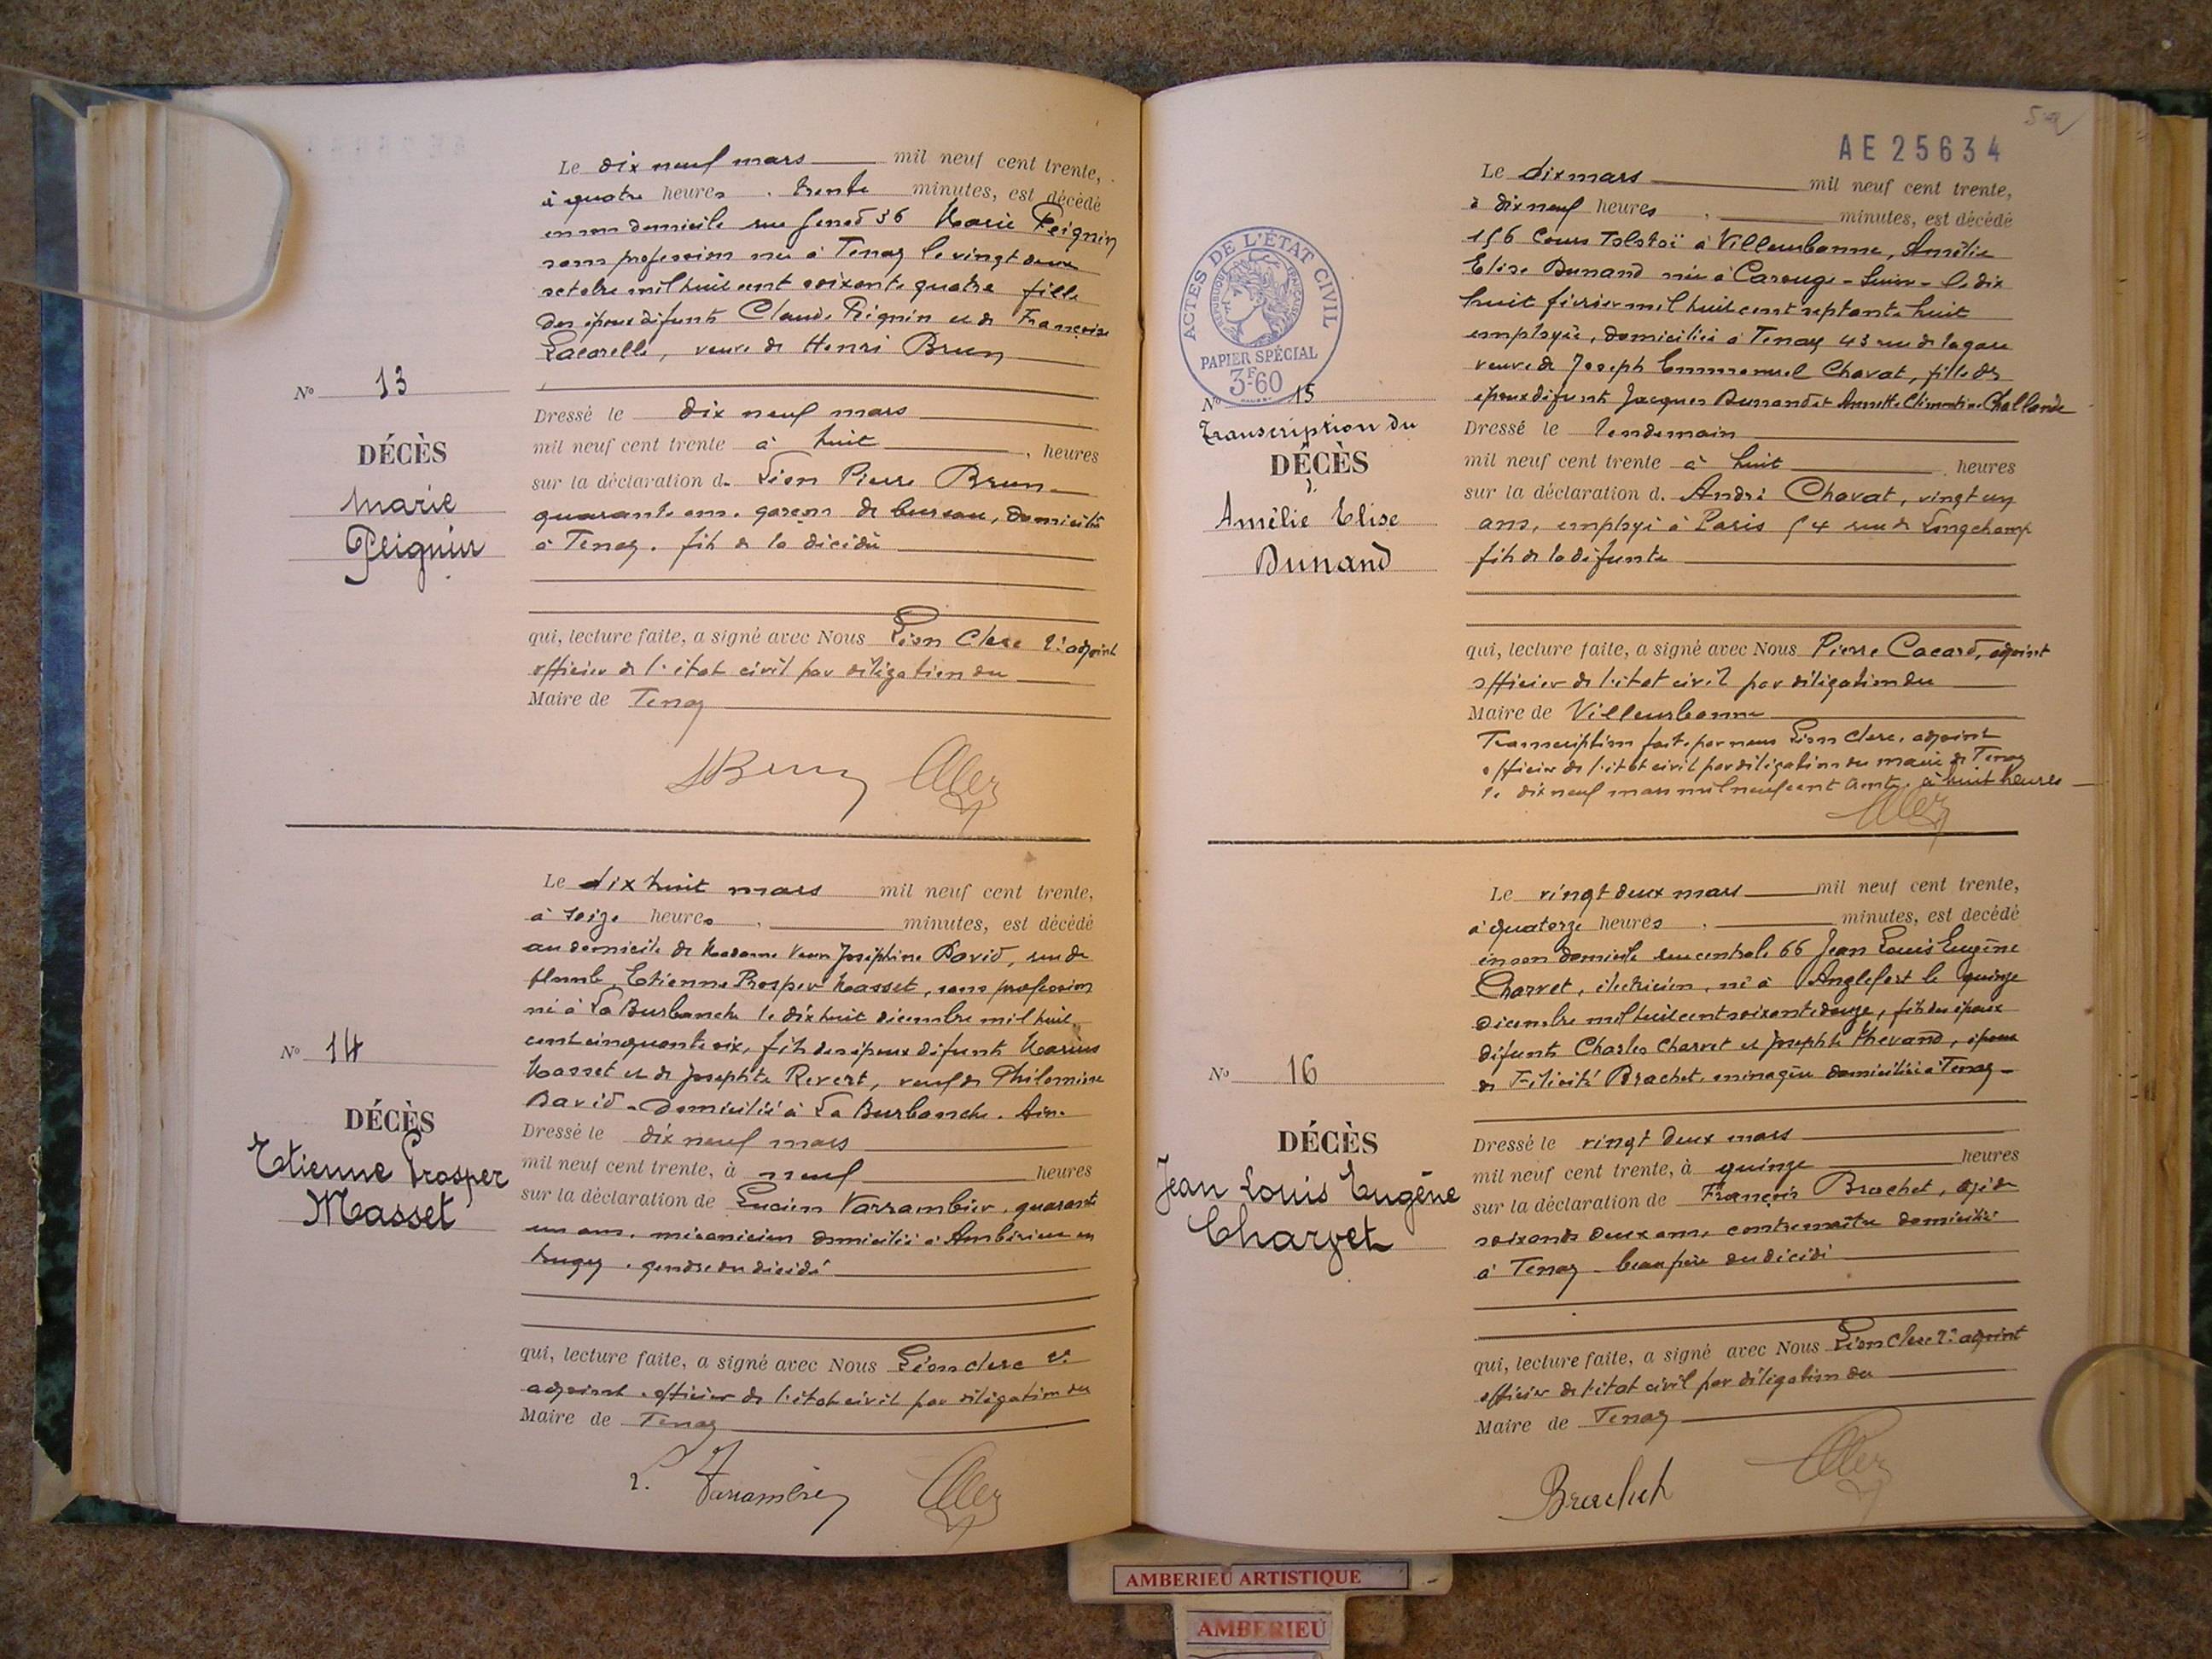 Le dix neuf mars mil neuf cent trente,
à quatre heures . trente minutes, est décédé
en son domicile rue Genod 36 Marie Peignin
sans profession née à Tenay le vingt deux
octobre mil huit cent soixante quatre fille
des époux défunts Claude Peignin et de Françoise
Lacorelle, veuve de Henri Brun
No 13
DÉCÈS
Marie
Peignin
Dressé le dix neuf mars
mil neuf cent trente à huit , heures
sur la déclaration de Léon Pierre Brun
quarante ans. garçon de bureau, domicilié
à Tenay. fils de la décédée
qui, lecture faite, a signé avec Nous Léon Clerc 2e adjoint
officier de l'état civil par délégation du
Maire de Tenay
LBrun
Le dix huit mars mil neuf cent trente,
à seize heures . minutes, est décédé
au domicile de Madame Veuve Joséphine David, rue de
plomb, Etienne Prosper Masset, sans profession
né à La Burbanche le dix huit décembre mil huit
cent cinquante six, fils des époux défunts Marius
Masset et de Josephte Revert, veuf de Philomène
David - Domicilié à La Burbanche. Ain.
No 14
DÉCÈS
Etienne Prosper
Masset
Dressé le dix neuf mars
mil neuf cent trente, à neuf heures
sur la déclaration de Lucien Varrambier, quarante
un ans, mécanicien domicilié à Ambérieu en
bugey. gendre du décédé
qui, lecture faite, a signé avec Nous Léon Clerc 2e
adjoint. officier de l'état civil par délégation du
Maire de Tenay
AE 25634
ACTES DE L'ÉTAT CIVIL
RÉPUBLIQUE FRANÇAISE
PAPIER SPÉCIAL
3F60
Le dix mars mil neuf cent trente,
à dix neuf heures . minutes, est décédé
156 Cours Tolstoï à Villeurbanne, Amélie
Elise Dunand née à Carouge - Suisse - le dix
huit février mil huit cent septante huit
employée, domiciliée à Tenay 43 rue de la gare
veuve de Joseph Emmanuel Chavat, fille des
époux défunts Jacques Dunand et Annette Clémentine Challande
No 15
Transcription du
DÉCÈS
d.
Amélie Elise
Dunand
Dressé le lendemain
mil neuf cent trente à huit heures
sur la déclaration d. André Chavat, vingt un
ans, employé à Paris 54 rue de Longchamp
fils de la défunte
qui, lecture faite, a signé avec Nous Pierre Cacard, adjoint
officier de l'état civil par délégation du
Maire de Villeurbanne
Transcription faite par nous Léon Clerc, adjoint
officier de l'état civil par délégation du maire de Tenay
le dix neuf mars mil neuf cent trente. à huit heures
Le vingt deux mars mil neuf cent trente,
à quatorze heures . minutes, est decédé
en son domicile rue centrale 66 Jean Louis Eugène
Charvet, électricien, né à Anglefort le quinze
décembre mil huit cent soixante douze, fils des époux
défunts Charles Charvet et Josephte Thevand, époux
de Félicité Brachet, ménagère domiciliée à Tenay
No 16
DÉCÈS
Jean Louis Eugène
Charvet
Dressé le vingt deux mars
mil neuf cent trente, à quinze heures
sur la déclaration de François Brachet, agé de
soixante deux ans, contremaître domicilié
à Tenay - beau père du décédé
qui, lecture faite, a signé avec Nous Léon Clerc 2e adjoint
officier de l'état civil par délégation du
Maire de Tenay
Brachet
AMBERIEU ARTISTIQUE
AMBERIEU